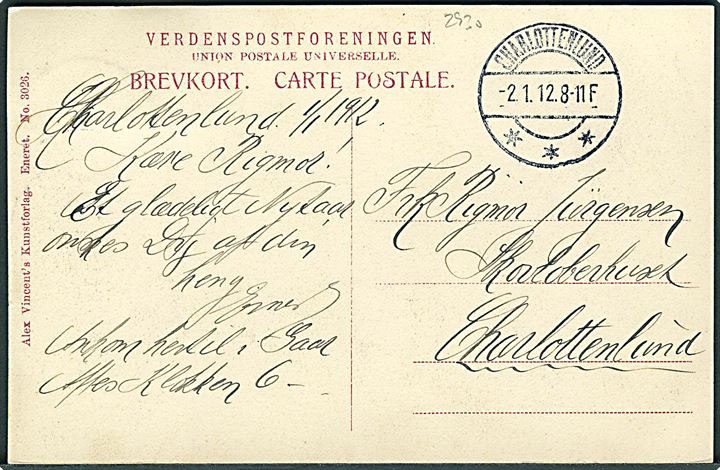 2930
VERDENSPOSTFORENINGEN.
UNION POSTALE UNIVERSELLE.
BREVKORT. CARTE POSTALE.
CHARLOTTENLUND
-2.1.12.8-11F
Alex Vincent's Kunstforlag. Eneret. No. 3026.
Charlottenlund 1/1 1912.
Kære Rigmor!
Et glædeligt Nytaar
ønskes Dig af din
heng
Ankom hertil i Gaar
Aftes Klokken 6 –
Frk Rigmor Jürgensen
Charlottenlund